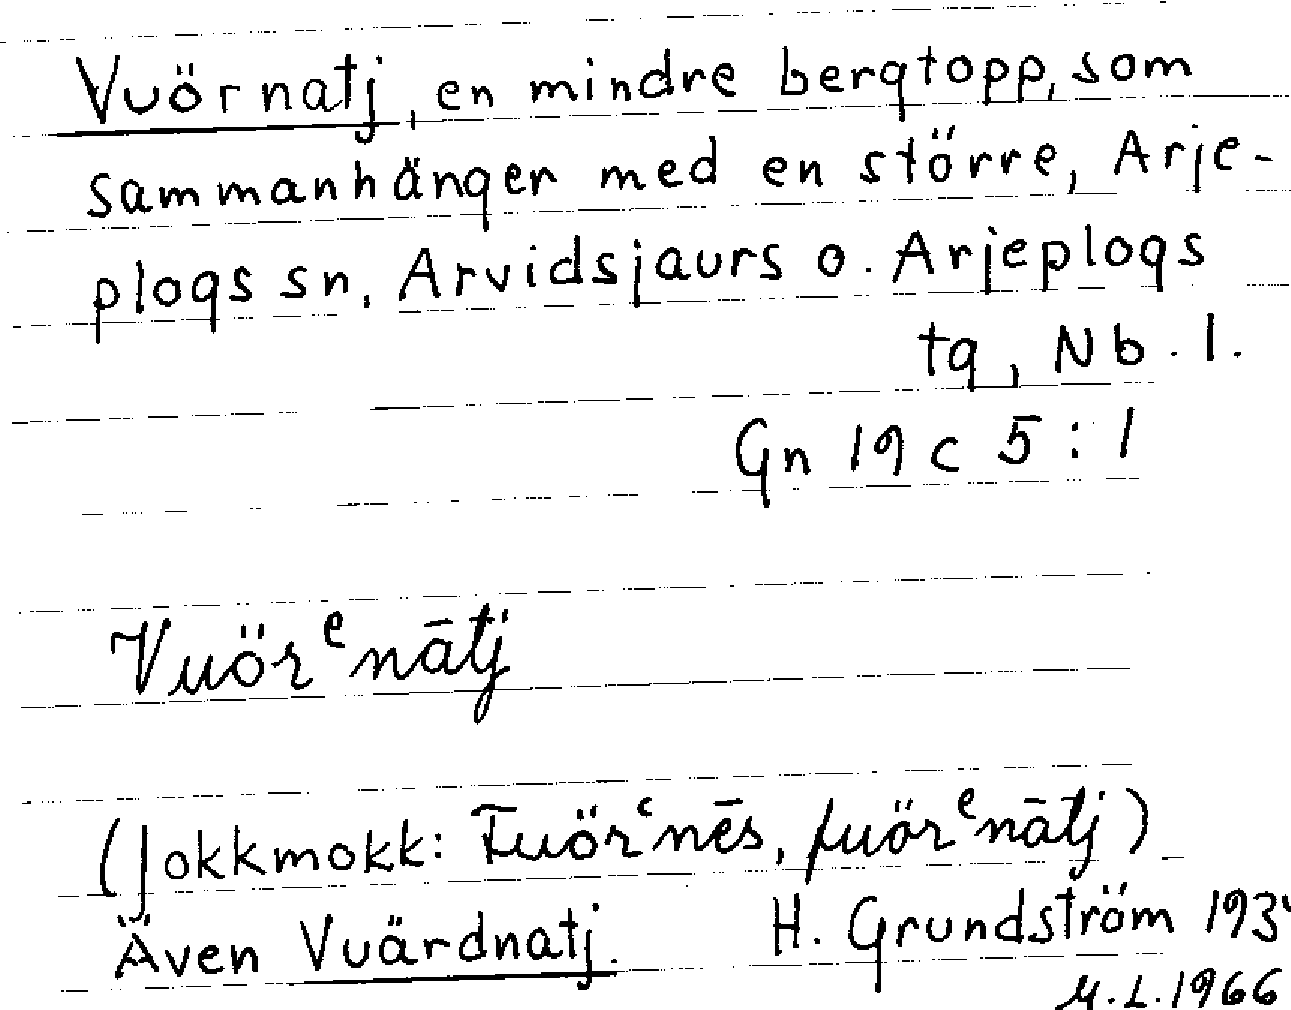 Vuörnatj, en mindre bergtopp, som
sammanhänger med en större, Arje-
plogs sn, Arvidsjaurs o. Arjeplogs
tg, Nb. l.
Gn 19 c 5 : 1
Vuörᵉnātj
(Jokkmokk: Fuörᵉnēs, fuörᵉnātj)
Även Vuärdnatj. H. Grundström 193
M.L. 1966